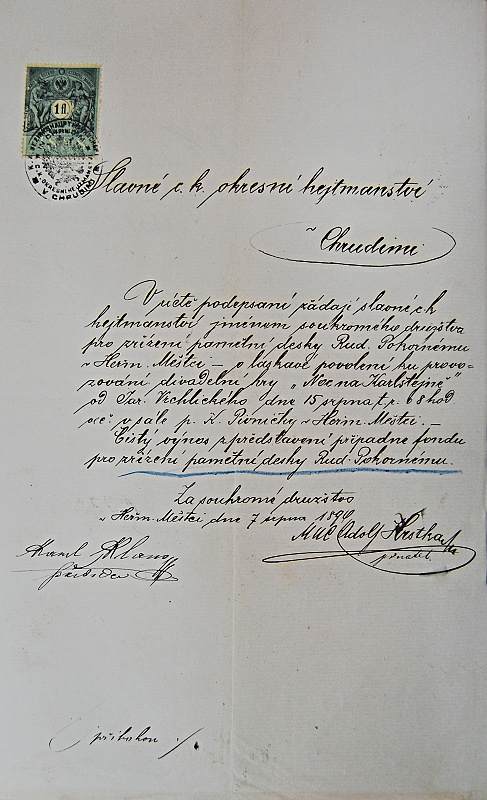 1 fl
V CHRUDIMI
Slavné c. k. okresní hejtmanství
v Chrudimi
V úctě podepsaní žádají slavné c k
hejtmanství jménem soukromého družstva
pro zřízení pamětní desky Rud. Pokornému
v Heřm. Městci – o láskavé povolení ku provo-
zování divadelní hry „Noc na Karlštejně"
od Jar. Vrchlického dne 15 srpna t. r. o 8 hod
več. v sále p. K. v Heřm. Městci. –
Čistý výnos z představení připadne fondu
pro zřízení pamětní desky Rud. Pokornému.
Za soukromé družstvo
v Heřm. Městci dne 7 srpna
MUC Adolf Hrstka
Karel
předseda